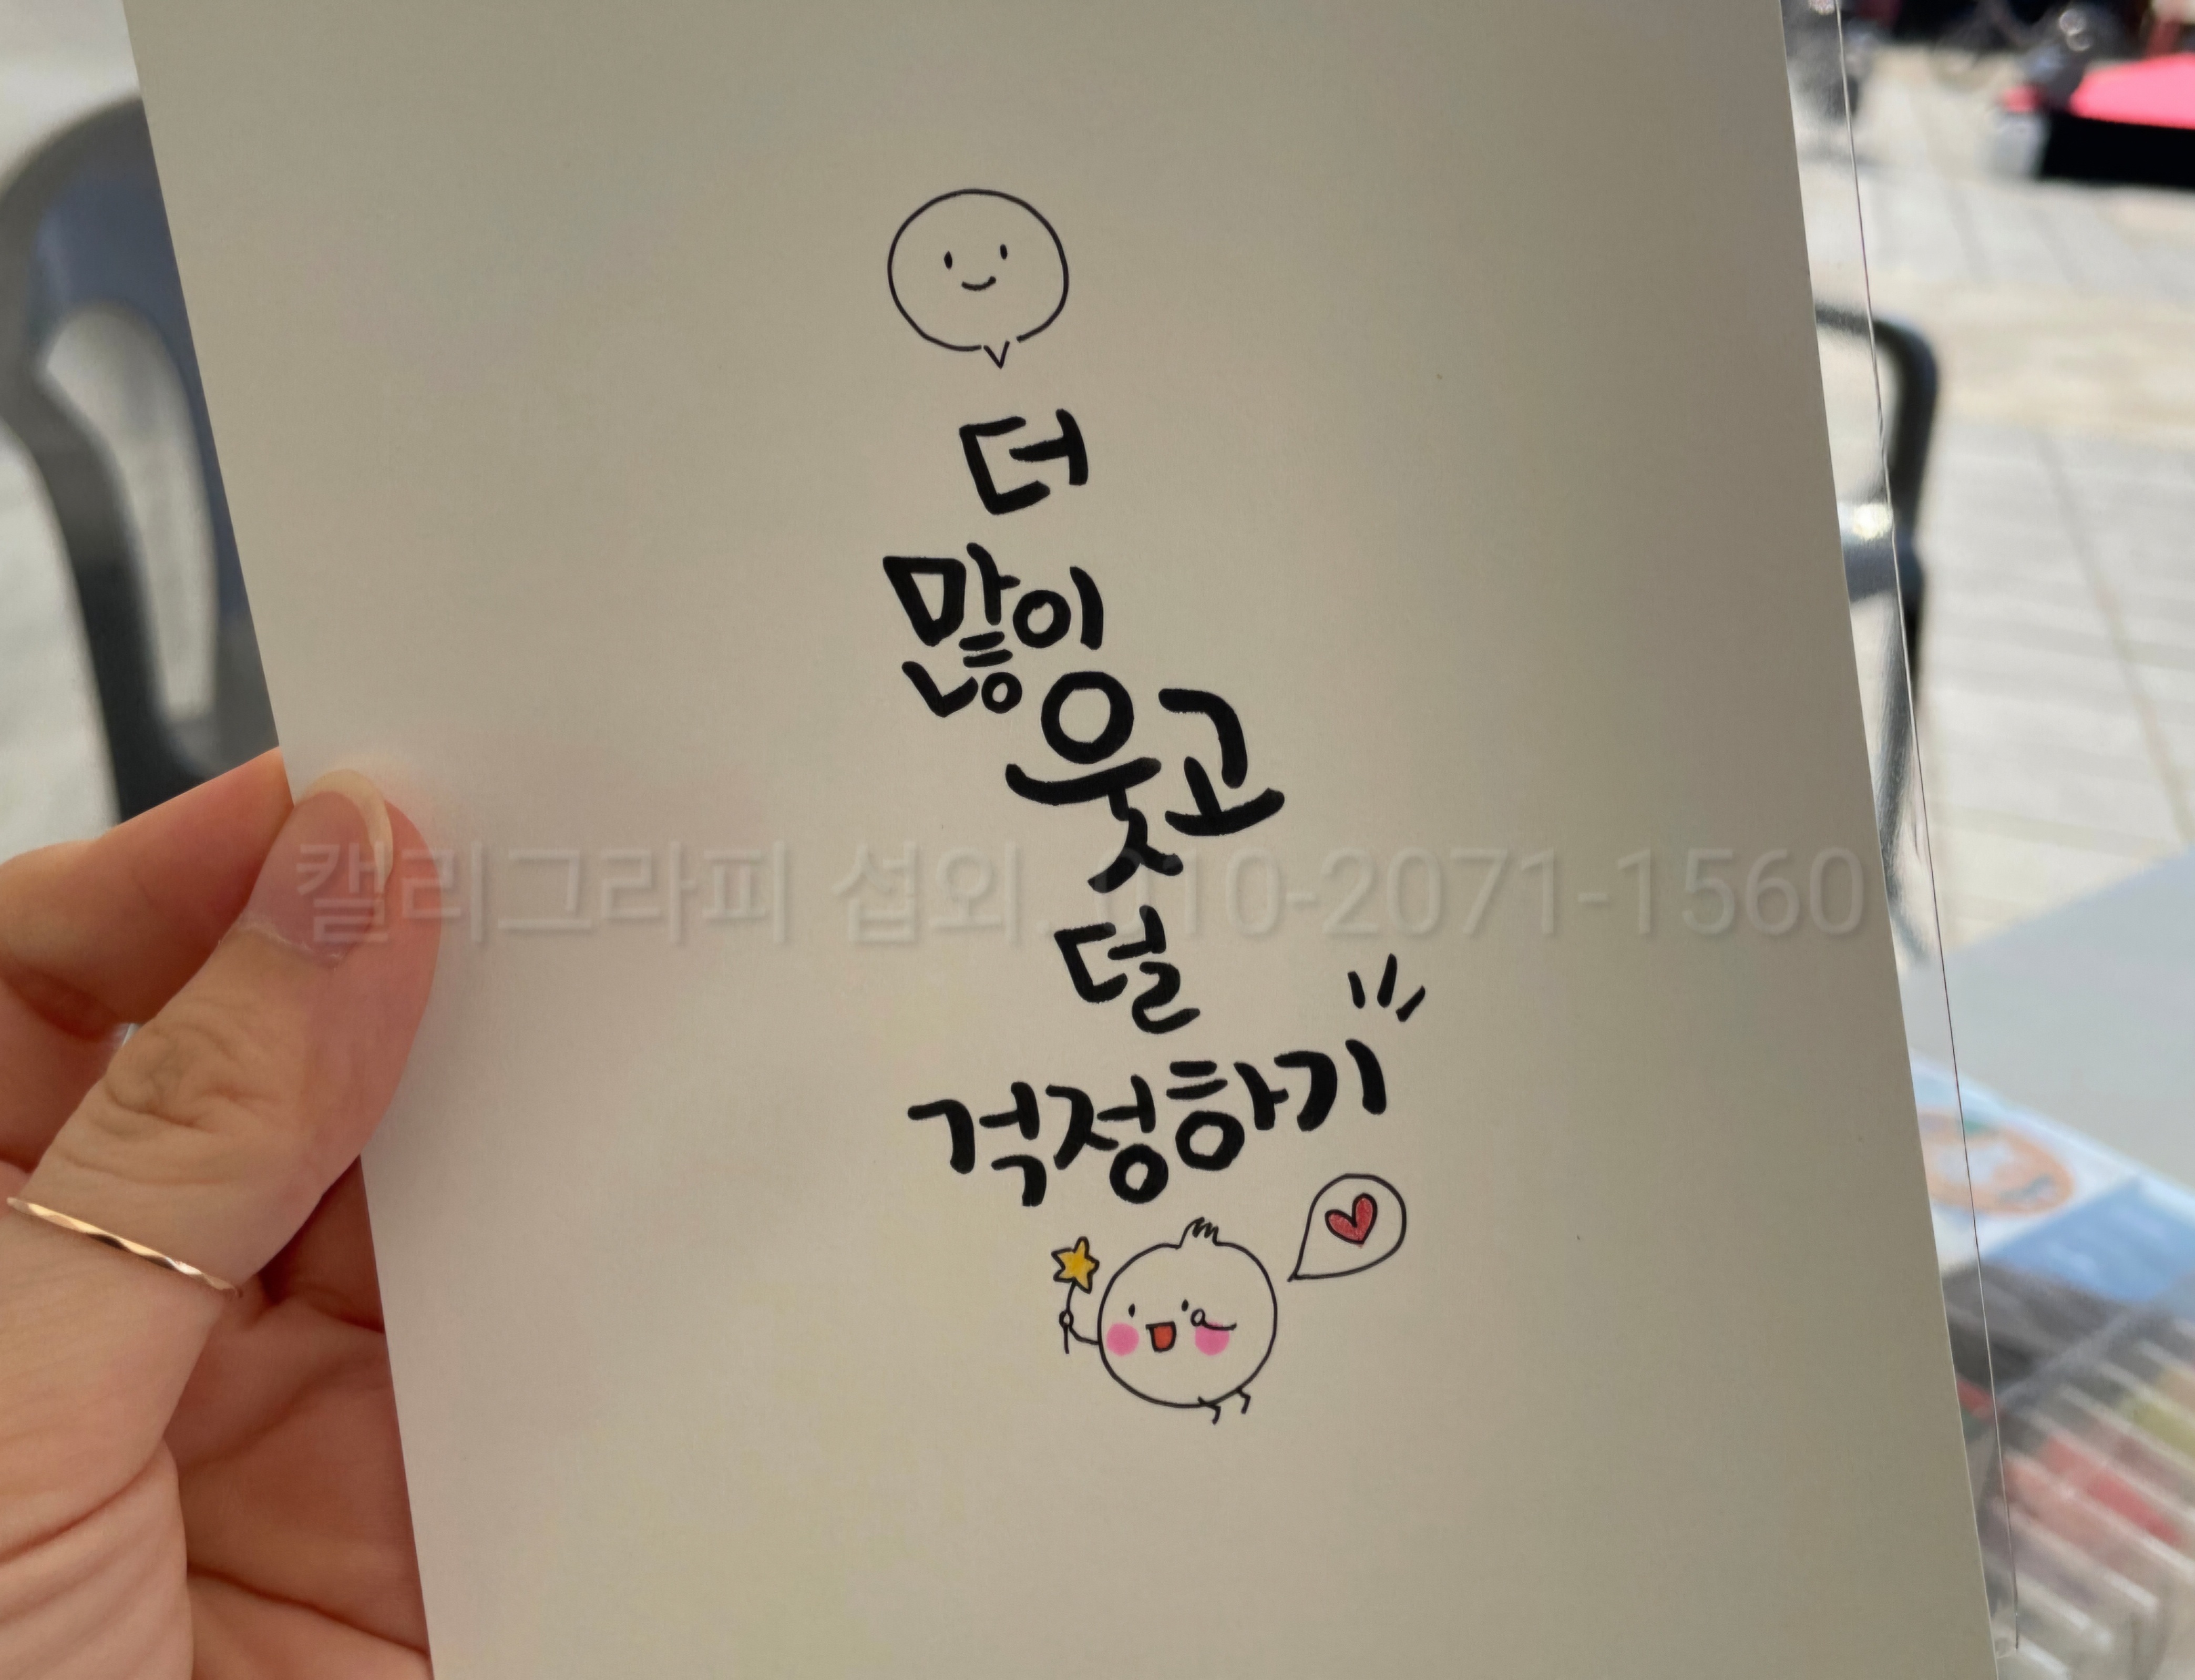 더
많이
웃고
캘리그라피 섭외 010-2071-1560
덜
걱정하기